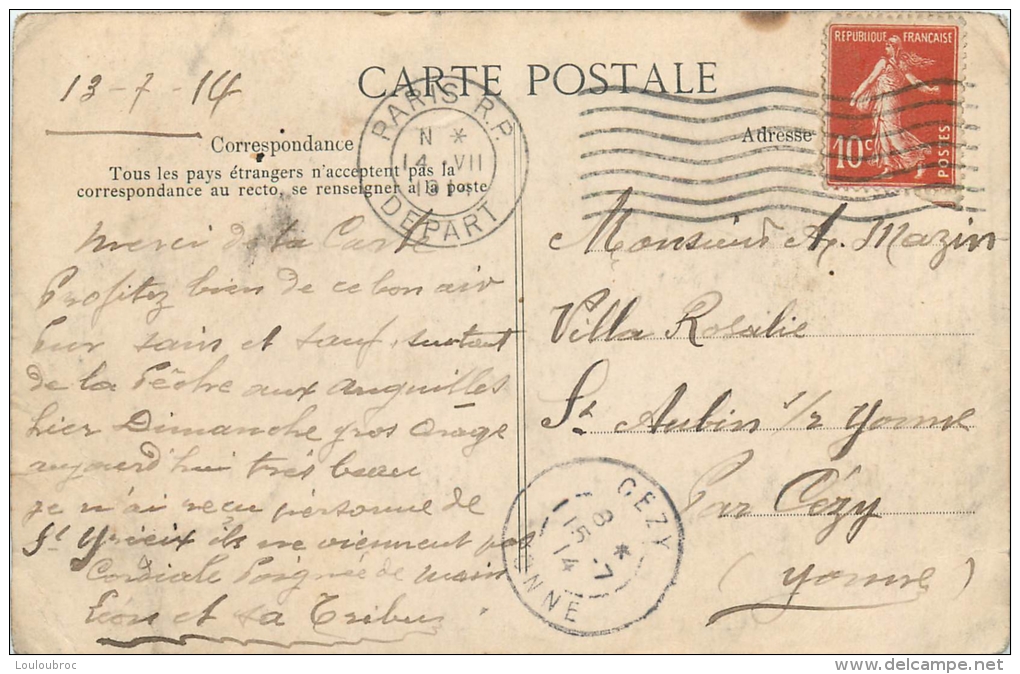 13-7-14
CARTE POSTALE
Correspondance
Tous les pays étrangers n'acceptent pas la
correspondance au recto, se renseigner à la poste
Adresse
RÉPUBLIQUE FRANÇAISE
10c
POSTES
PARIS R.P.
N *
14 -VII
DEPART
merci de la Carte
Profitez bien de ce bon air
Pur sain et sauf surtout
de la Pêche aux anguilles
hier Dimanche gros Orage
aujourd'hui très beau
je n'ai reçu personne de
St Yrieix ils ne viennent pas
Cordiale Poignée de main
Léon et sa Tribu
Monsieur A. Mazin
Villa Rosalie
St Aubin s/r Yonne
Par Cézy
(Yonne)
CEZY
8 *
15 -7
14
YONNE
Louloubroc
www.delcampe.net